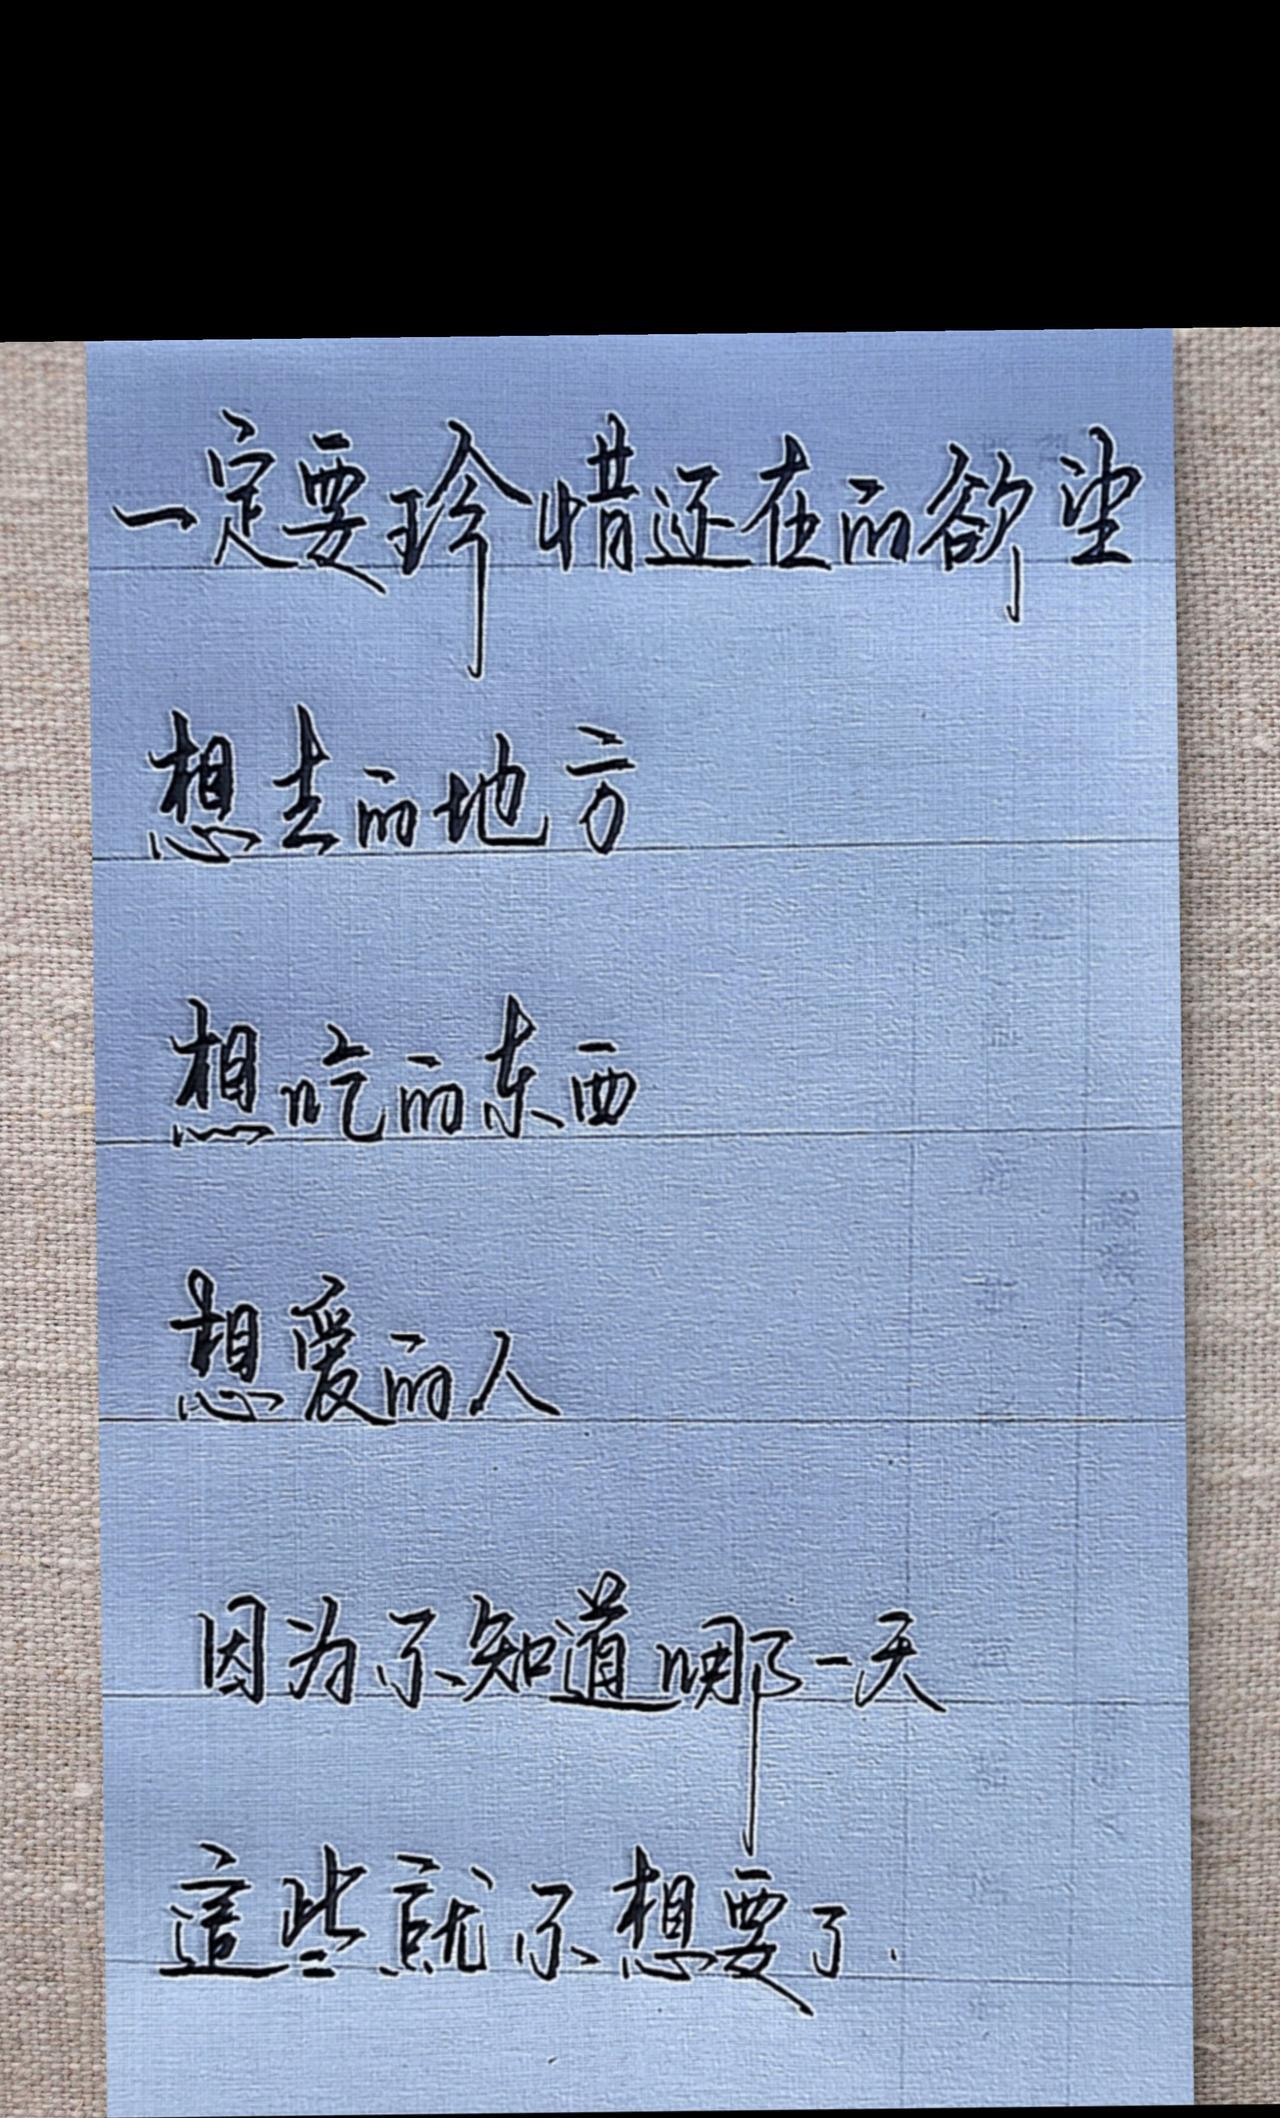 一定要珍惜还在的欲望
想去的地方
想吃的东西
想爱的人
因为不知道哪一天
這些就不想要了.